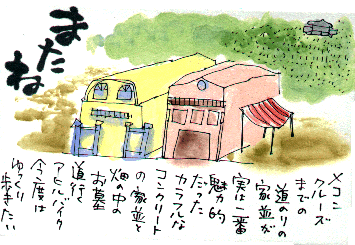 またね
メコン
クルーズ
までの
道のりの
家並が
実は一番
魅力的
だった
カラフルな
コンクリート
の家並と
畑の中の
お墓
道行く
アヒルバイク
今度は
ゆっくり
歩きたい